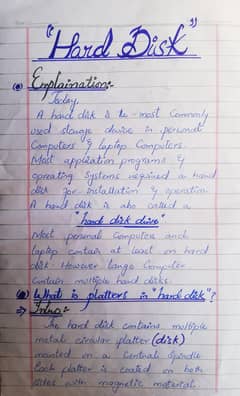 "Hard Disk"
Explaination:-
Today,
A hard disk is the most Commonly
used storage device in personal
Computers & laptop Computers.
Most application programs &
operating Systems required a hard
disk for installation & operation.
A hard disk is also called a
"hard disk drive"
Most personal Computer and
laptop contain at least on hard
disk. However large Computer
Contain multiple hard disks.
What is platters in "hard disk"?
Intro:-
The hard disk contains multiple
metal circular platter (disk)
mounted on a Central Spindle
Each platter is coated on both
sides with magnetic material.